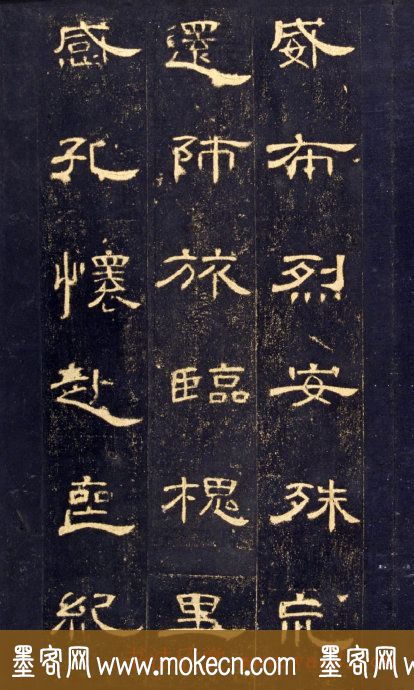 威布烈安殊巟
還師旅臨槐里
感孔懷赴喪紀
墨客网 www.mokecn.com 墨客网